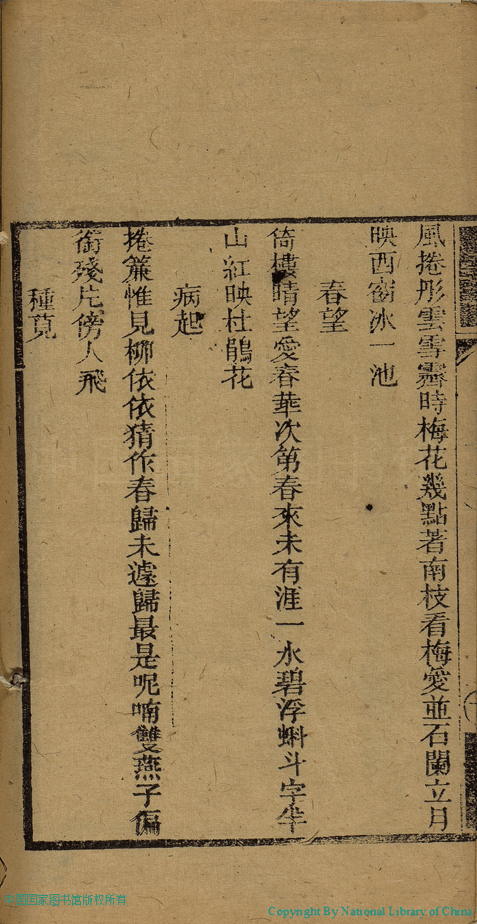 風捲彤雲雪霽時梅花幾點著南枝看梅愛並石闌立月
映西窗冰一池
春望
倚樓晴望愛春華次第春來未有涯一水碧浮蝌斗字半
山紅映杜鵑花
病起
捲簾惟見柳依依猜作春歸未遽歸最是呢喃雙燕子偏
銜殘片傍人飛
種莧
中国国家图书馆版权所有
Copyright By National Library of China